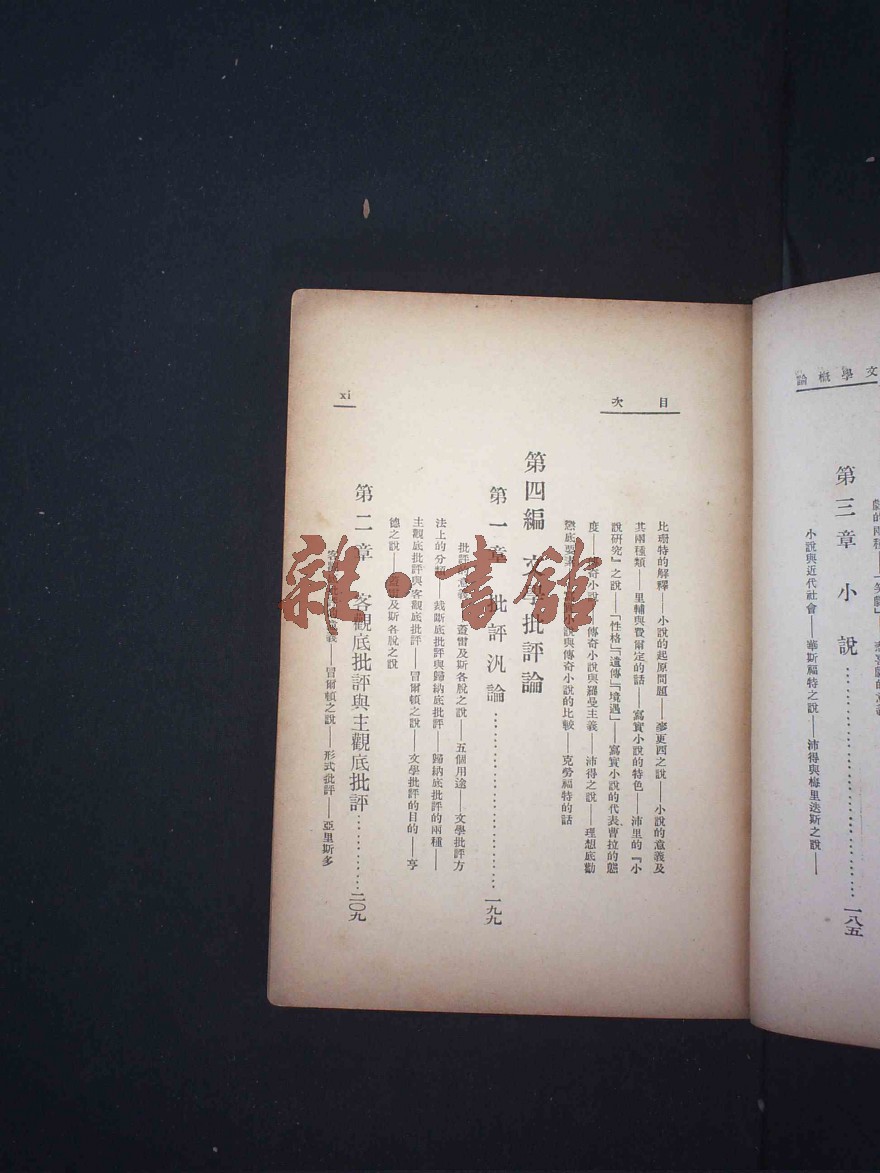 文學概論
劇的兩種
第三章 小說……一八五
小說與近代社會——華斯福特之說——沛得與梅里迭斯之說——
目次
比珊特的解釋——小說的起原問題——麥更西之說——小說的意義及
其兩種類——里輔與費爾定的話——寫實小說的特色——沛里的『小
說研究』之說——『性格』『遺傳』『境遇』——寫實小說的代表曹拉的態
度——傳奇小說——傳奇小說與羅曼主義——沛得之說——理想底勸
懲底要素——小說與傳奇小說的比較——克勞福特的話
第四編 文學批評論
第一章 批評汎論……一九九
批評的意義——蓋雷及斯各脫之說——五個用途——文學批評方
法上的分類——裁斷底批評與歸納底批評——歸納底批評的兩種——
主觀底批評與客觀底批評——冒爾頓之說——文學批評的目的——亨
德之說——蓋雷及斯各脫之說
第二章 客觀底批評與主觀底批評……二〇九
客觀——冒爾頓之說——形式批評——亞里斯多
xi
雜·書館